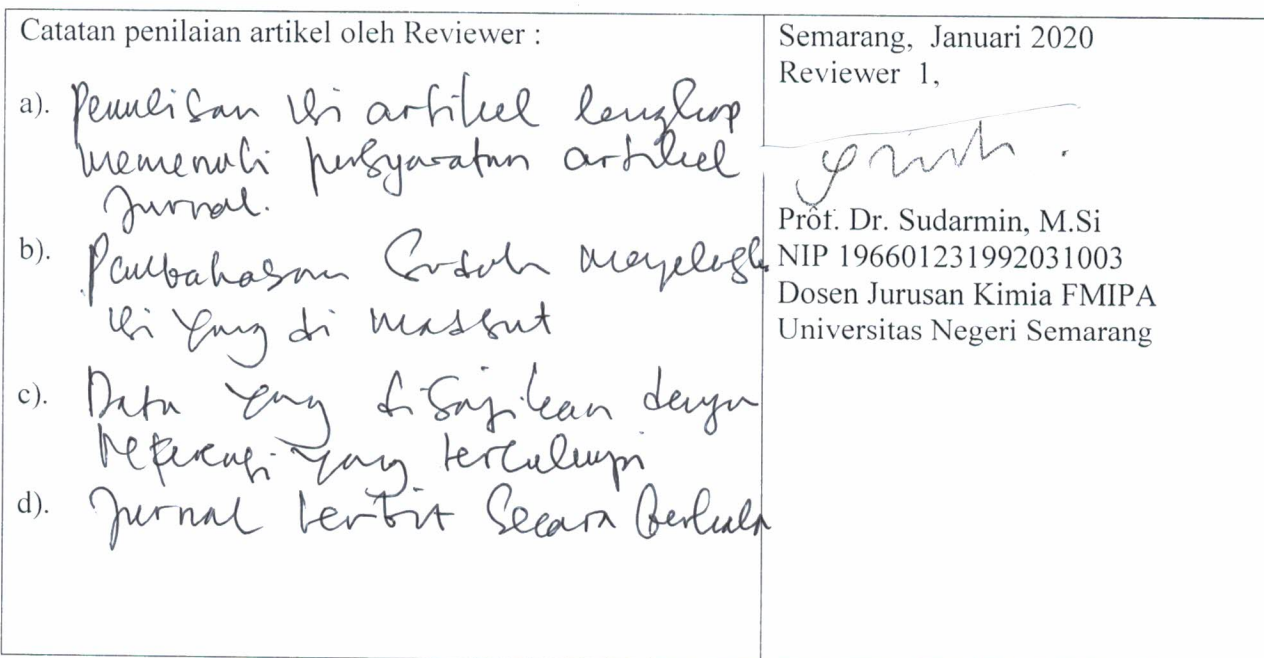 Catatan penilaian artikel oleh Reviewer :
a). Penulisan isi artikel lengkap
memenuhi persyaratan artikel
Jurnal.
b). Pembahasan sudah
isi yang di
c). Data yang disajikan dengan
referensi yang tercukupi
d). Jurnal terbit Secara Berkala
Semarang, Januari 2020
Reviewer 1,
Prof. Dr. Sudarmin, M.Si
NIP 196601231992031003
Dosen Jurusan Kimia FMIPA
Universitas Negeri Semarang